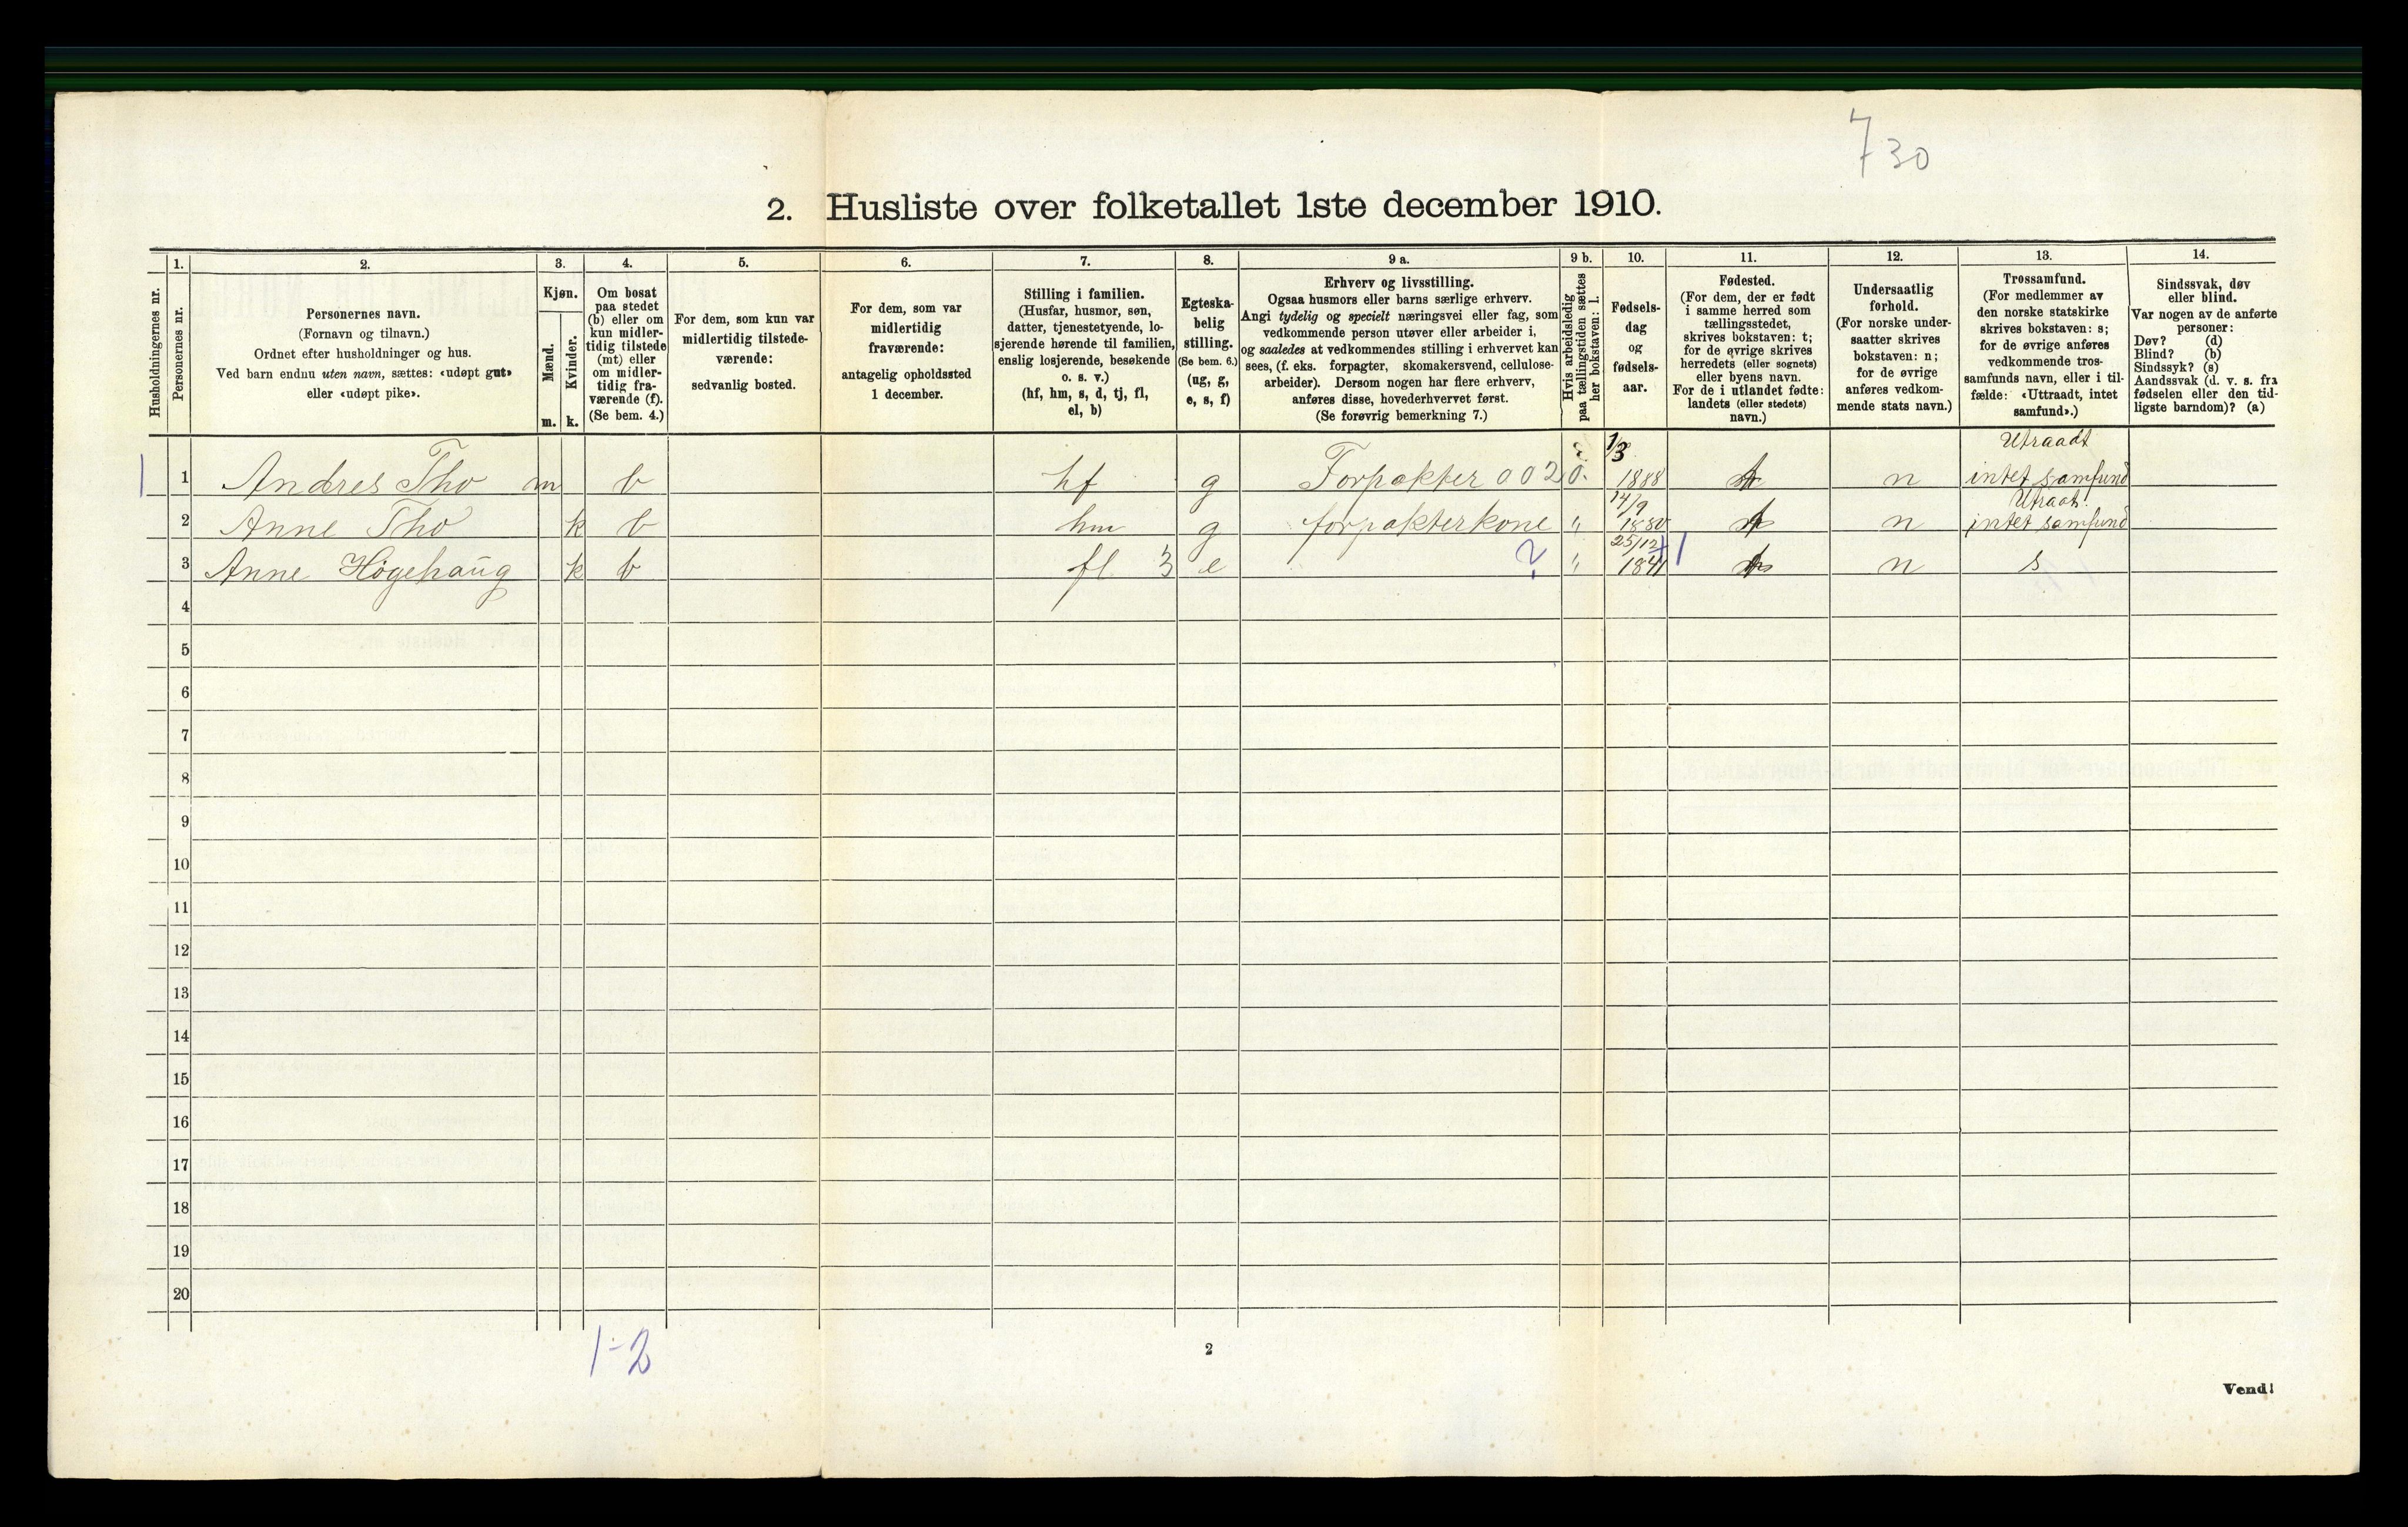 730
2. Husliste over folketallet 1ste december 1910.
Husholdningernes nr.
1.
Personernes nr.
2.
Personernes navn.
(Fornavn og tilnavn.)
Ordnet efter husholdninger og hus.
Ved barn endnu uten navn, sættes: «udøpt gut»
eller «udøpt pike».
3.
Kjøn.
Mænd.
m.
Kvinder.
k.
4.
Om bosat
paa stedet
(b) eller om
kun midler-
tidig tilstede
(mt) eller
om midler-
tidig fra-
værende (f).
(Se bem. 4.)
5.
For dem, som kun var
midlertidig tilstede-
værende:
sedvanlig bosted.
6.
For dem, som var
midlertidig
fraværende:
antagelig opholdssted
1 december.
7.
Stilling i familien.
(Husfar, husmor, søn,
datter, tjenestetyende, lo-
sjerende hørende til familien,
enslig losjerende, besøkende
o. s. v.)
(hf, hm, s, d, tj, fl,
el, b)
8.
Egteska-
belig
stilling.
(Se bem. 6.)
(ug, g,
e, s, f)
9 a.
Erhverv og livsstilling.
Ogsaa husmors eller barns særlige erhverv.
Angi tydelig og specielt næringsvei eller fag, som
vedkommende person utøver eller arbeider i,
og saaledes at vedkommendes stilling i erhvervet kan
sees, (f. eks. forpagter, skomakersvend, cellulose-
arbeider). Dersom nogen har flere erhverv,
anføres disse, hovederhvervet først.
(Se forøvrig bemerkning 7.)
9 b.
Hvis arbeidsledig
paa tællingstiden sættes
her bokstaven: l.
10.
Fødsels-
dag
og
fødsels-
aar.
11.
Fødested.
(For dem, der er født
i samme herred som
tællingsstedet,
skrives bokstaven: t;
for de øvrige skrives
herredets (eller sognets)
eller byens navn.
For de i utlandet fødte:
landets (eller stedets)
navn.)
12.
Undersaatlig
forhold.
(For norske under-
saatter skrives
bokstaven: n;
for de øvrige
anføres vedkom-
mende stats navn.)
13.
Trossamfund.
(For medlemmer av
den norske statskirke
skrives bokstaven: s;
for de øvrige anføres
vedkommende tros-
samfunds navn, eller i til-
fælde: «Uttraadt, intet
samfund».)
14.
Sindssvak, døv
eller blind.
Var nogen av de anførte
personer:
Døv? (d)
Blind? (b)
Sindssyk? (s)
Aandssvak (d. v. s. fra
fødselen eller den tid-
ligste barndom)? (a)
1 1 Andres Tho m b hf g Forpakter 0020. 1/3 1888 t n Utraadt intet samfund
2 Anne Tho k b hm g forpakterkone " 14/9 1880 t n Utraat. intet samfund
3 Anne Högehaug k b fl 3 e ? " 25/12 1841 t n s
4
5
6
7
8
9
10
11
12
13
14
15
16
17
18
19
20
1-2
2
Vend!